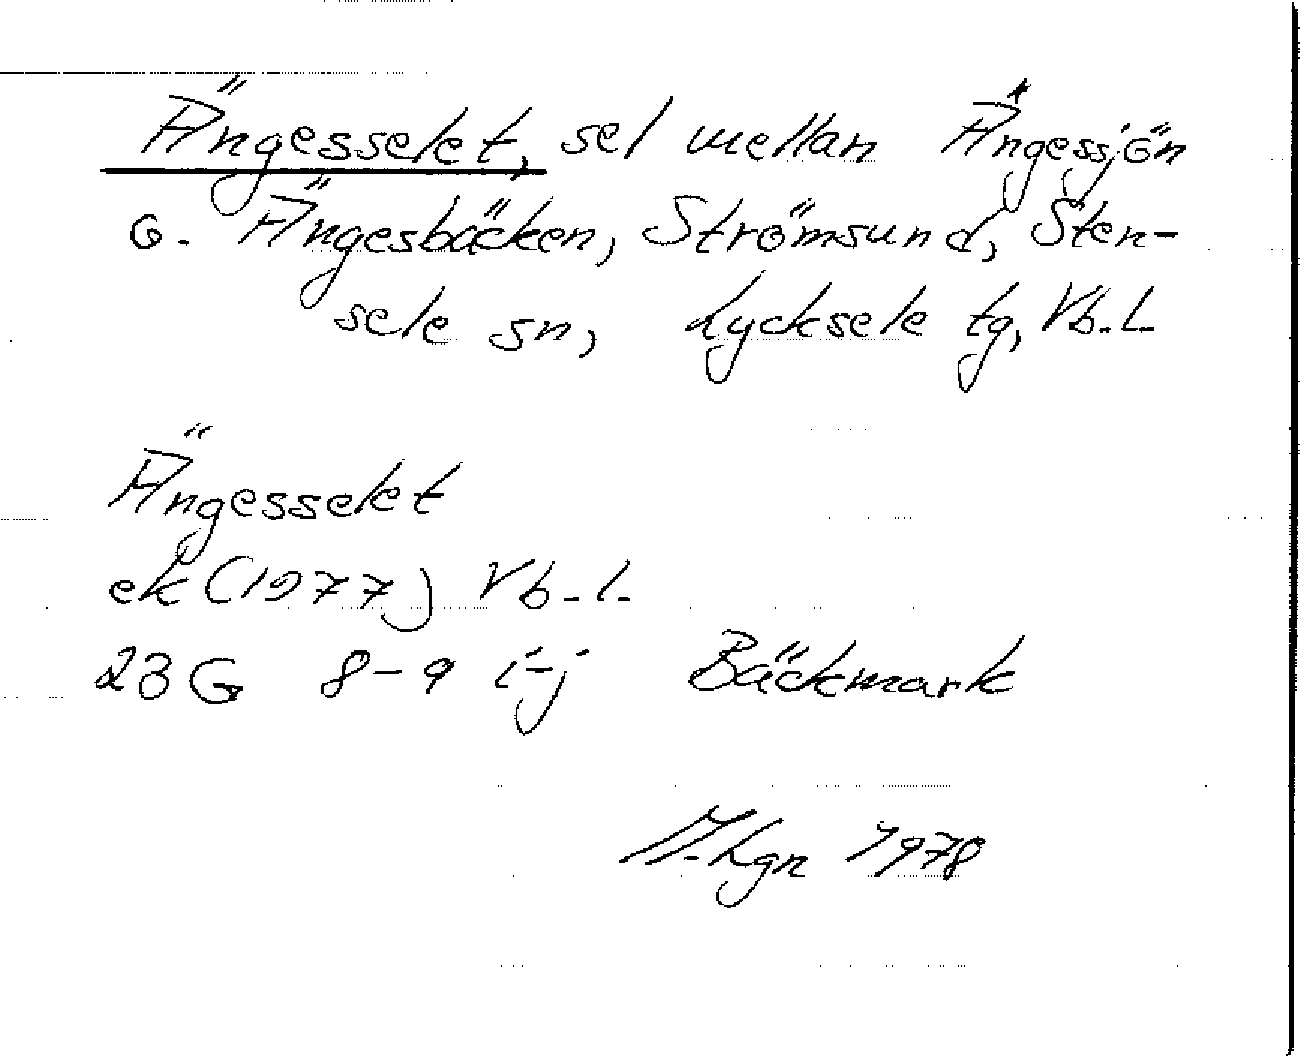 Ängesselet, sel mellan Ängessjön
o. Ängesbäcken, Strömsund, Sten-
sele sn, Lycksele tg, Vb.L.
Ängesselet
ek (1977) Vb.l.
23G 8-9 i-j Bäckmark
M.Lgn 1978